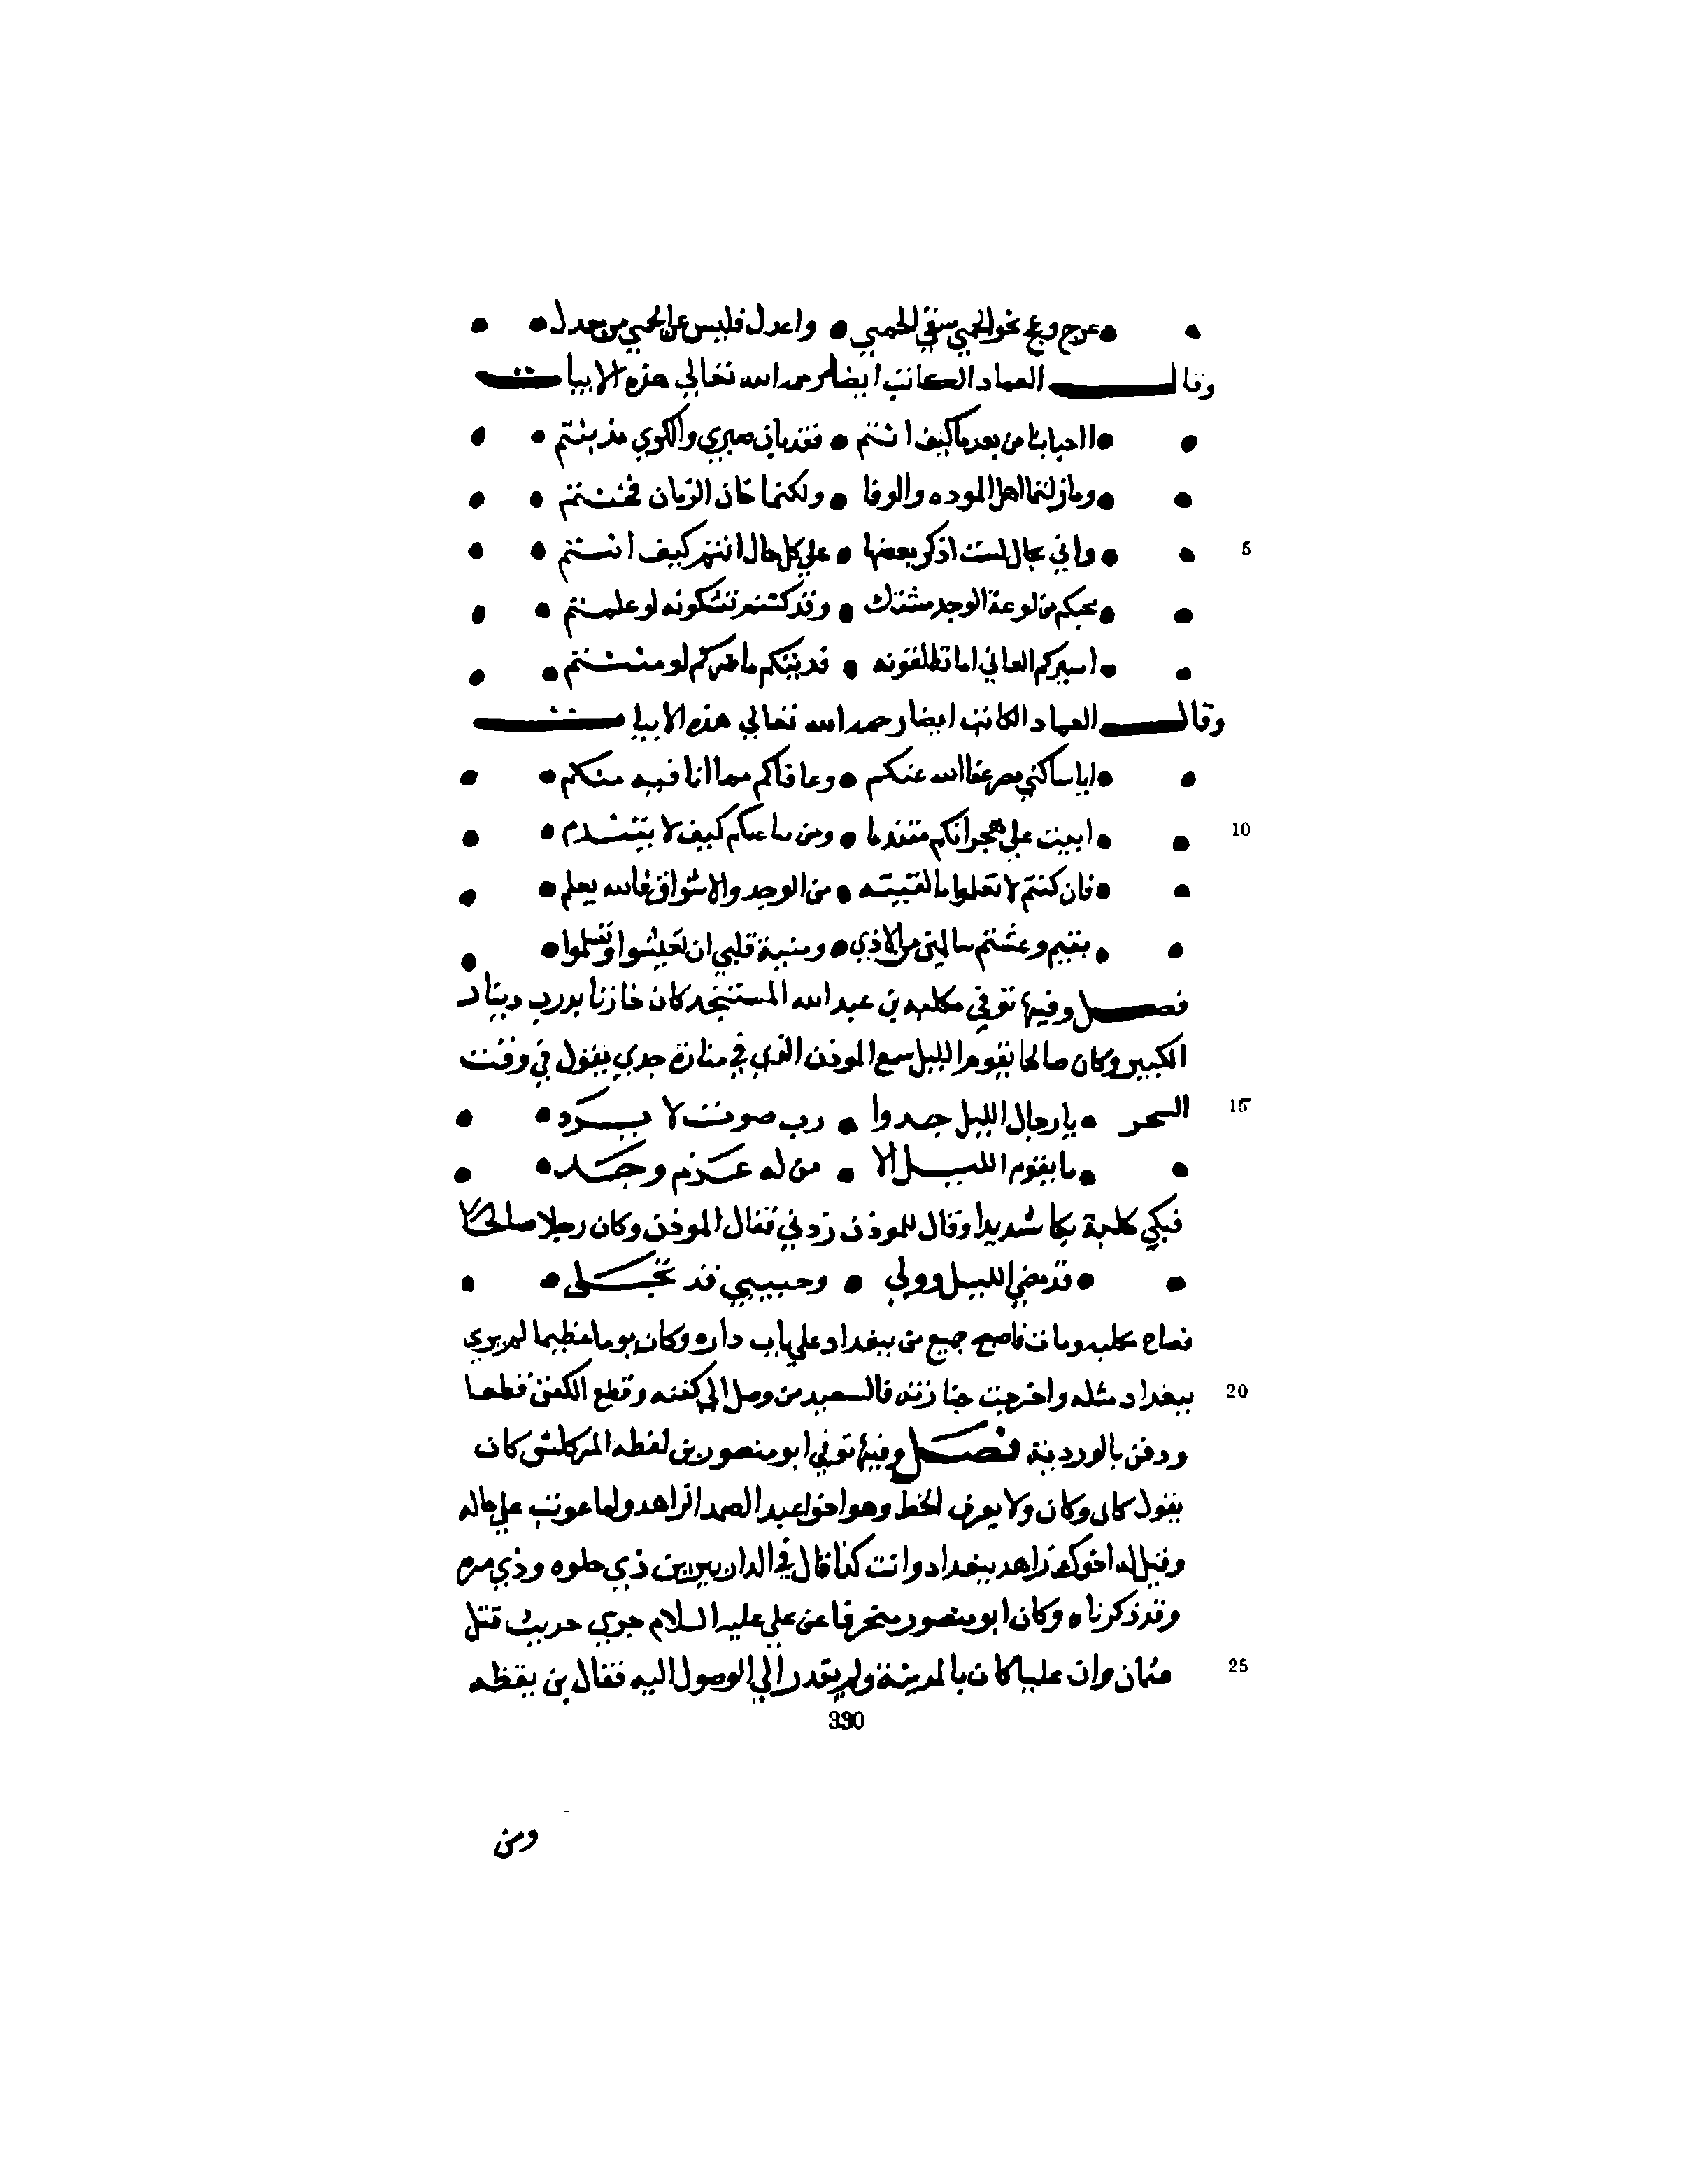 • • عرج وعج نحو الحمي سقي الحمي • واعدل فليس عن الحمي من معدل • •
وقال العماد الكاتب ايضا رحمه الله تعالي هذه الابيات
• • ااحبابنا من بعدنا كيف انتم • فقد بان صبري والكري مذ بنتم • •
• • وما زلتما اهل الموده والوفا • ولكنما خان الزمان فخنتم • •
5 • • واني بحال لست اذكر بعضها • علي كل حال انتم كيف انتم • •
• • بحبكم من لوعة الوجد مشتك • وقد كنتم تشكونه لو علمتم • •
• • اسيركم العاني اما تطلقونه • فديتكم ما ضركم لو مننتم • •
وقال العماد الكاتب ايضا رحمه الله تعالي هذه الابيات
• • ايا ساكني مصر عفا الله عنكم • وعافاكم مما انا فيه منكم • •
10 • • ابيت علي هجرانكم متندما • ومن باعكم كيف لا يتندم • •
• • فان كنتم لا تعلموا ما لقيته • من الوجد والاشواق فالله يعلم • •
• • بقيتم وعشتم سالمين من الاذي • ومنية قلبي ان تعيشوا وتسلموا • •
فصل وفيها توفي مكلبه بن عبد الله المستنجد كان خازنا بدرب دينار
الكبير وكان صالحا يقوم الليل سمع الموذن الذي في منارة جدي يقول في وقت
15 السحر • يا رجال الليل جدوا • رب صوت لا يرد • •
• • ما يقوم الليل الا • من له عزم وجد • •
فبكي كلبة بكا شديدا وقال للموذن زدني فقال الموذن وكان رجلا صالحا
• • قد مضي الليل وولي • وحبيبي قد تجلي • •
فصاح مكلبه ومات فاصبح جميع من ببغداد علي باب داره وكان يوما عظيما لم يري
20 ببغداد مثله واخرجت جنازته فالسعيد من وصل الي كفنه وقطع الكفن قطعا
ودفن بالوردية فصل وفيها توفي ابو منصور بن لفظه المركلش كان
يقول كان وكان ولا يعرف الخط وهو اخو عبد الصمد الزاهد ولما عوتب علي حاله
وقيل له اخوك زاهد بغداد وانت كذا قال في الدار بيرين ذي حلوه وذي مره
وقد ذكرناه وكان ابو منصور منحرفا عن علي عليه السلام جري حديث قتل
25 عثمان وان عليا كان بالمدينة ولم يقدر الي الوصول اليه فقال بن يقظه
330
ومن